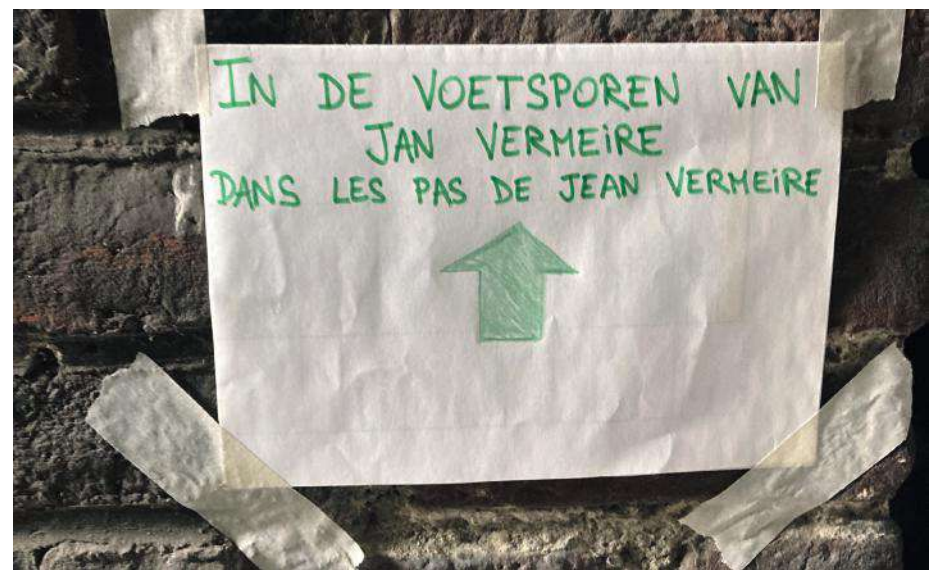 IN DE VOETSPOREN VAN
JAN VERMEiRE
DANS LES PAS DE JEAN VERMEiRE